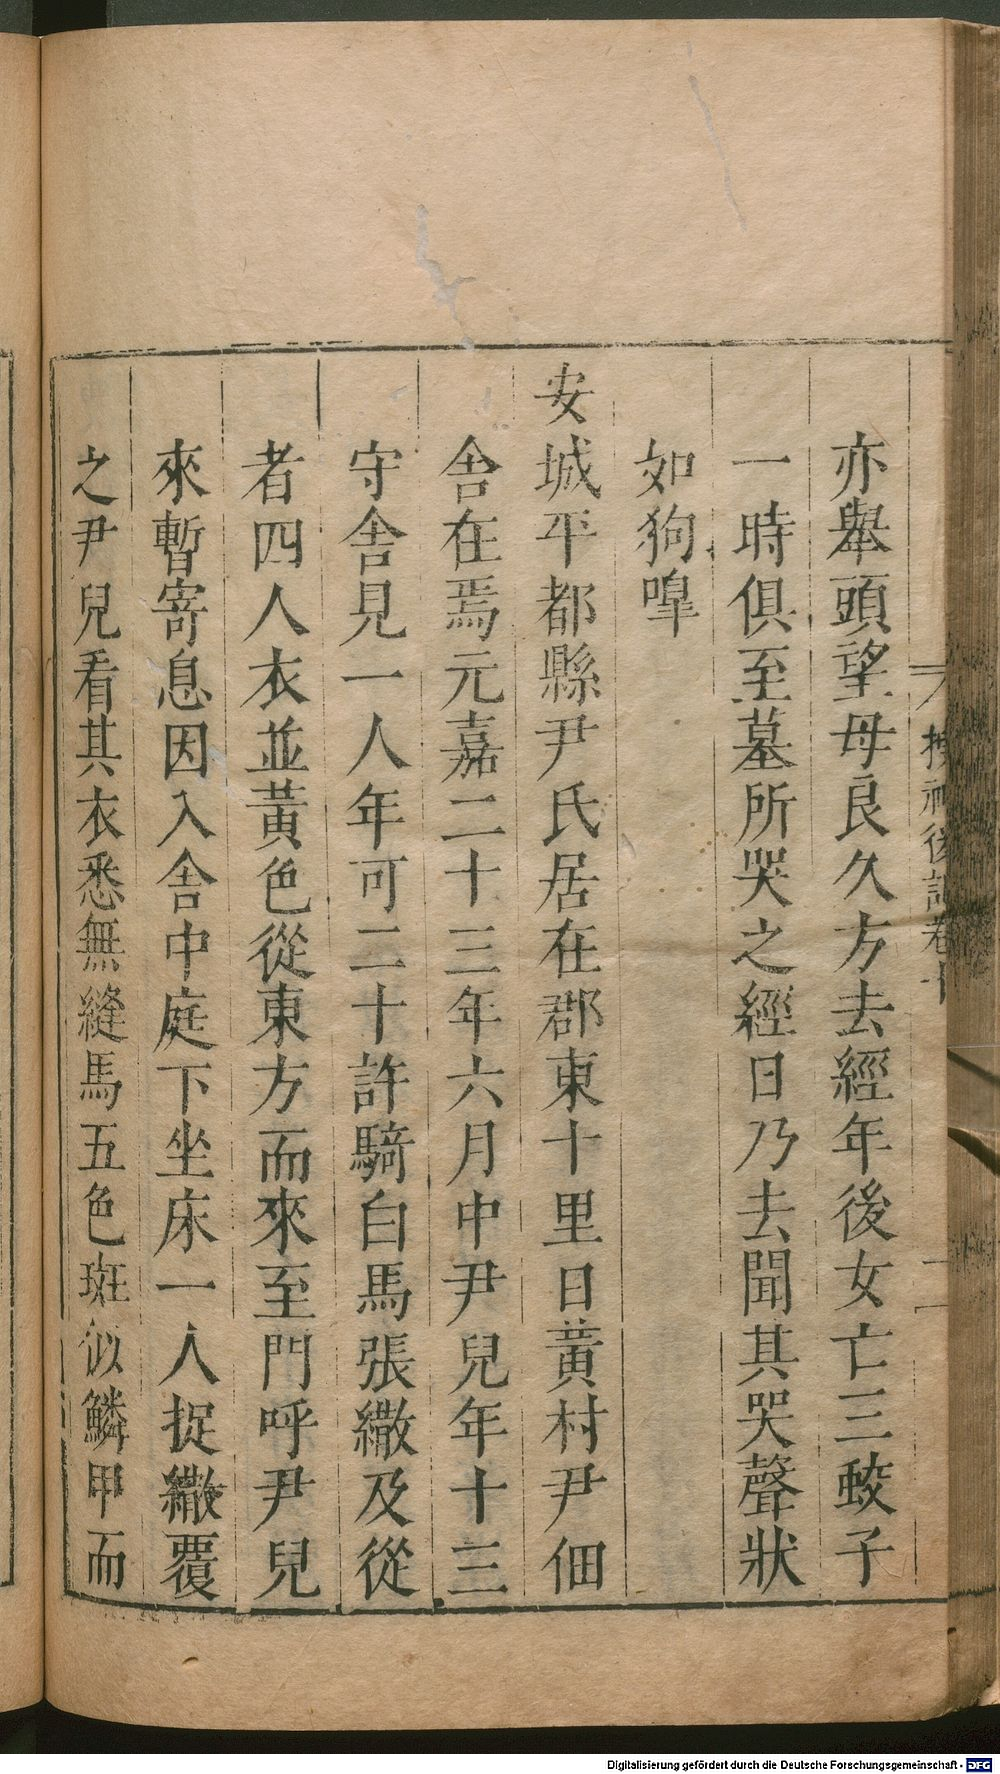 搜神後記卷十 二
亦舉頭望母良久方去經年後女亡三蛟子
一時俱至墓所哭之經日乃去聞其哭聲狀
如狗嘷
安城平都縣尹氏居在郡東十里日黃村尹佃
舍在焉元嘉二十三年六月中尹兒年十三
守舍見一人年可二十許騎白馬張繖及從
者四人衣並黃色從東方而來至門呼尹兒
來暫寄息因入舍中庭下坐床一人捉繖覆
之尹兒看其衣悉無縫馬五色斑似鱗甲而
Digitalisierung gefördert durch die Deutsche Forschungsgemeinschaft - DFG